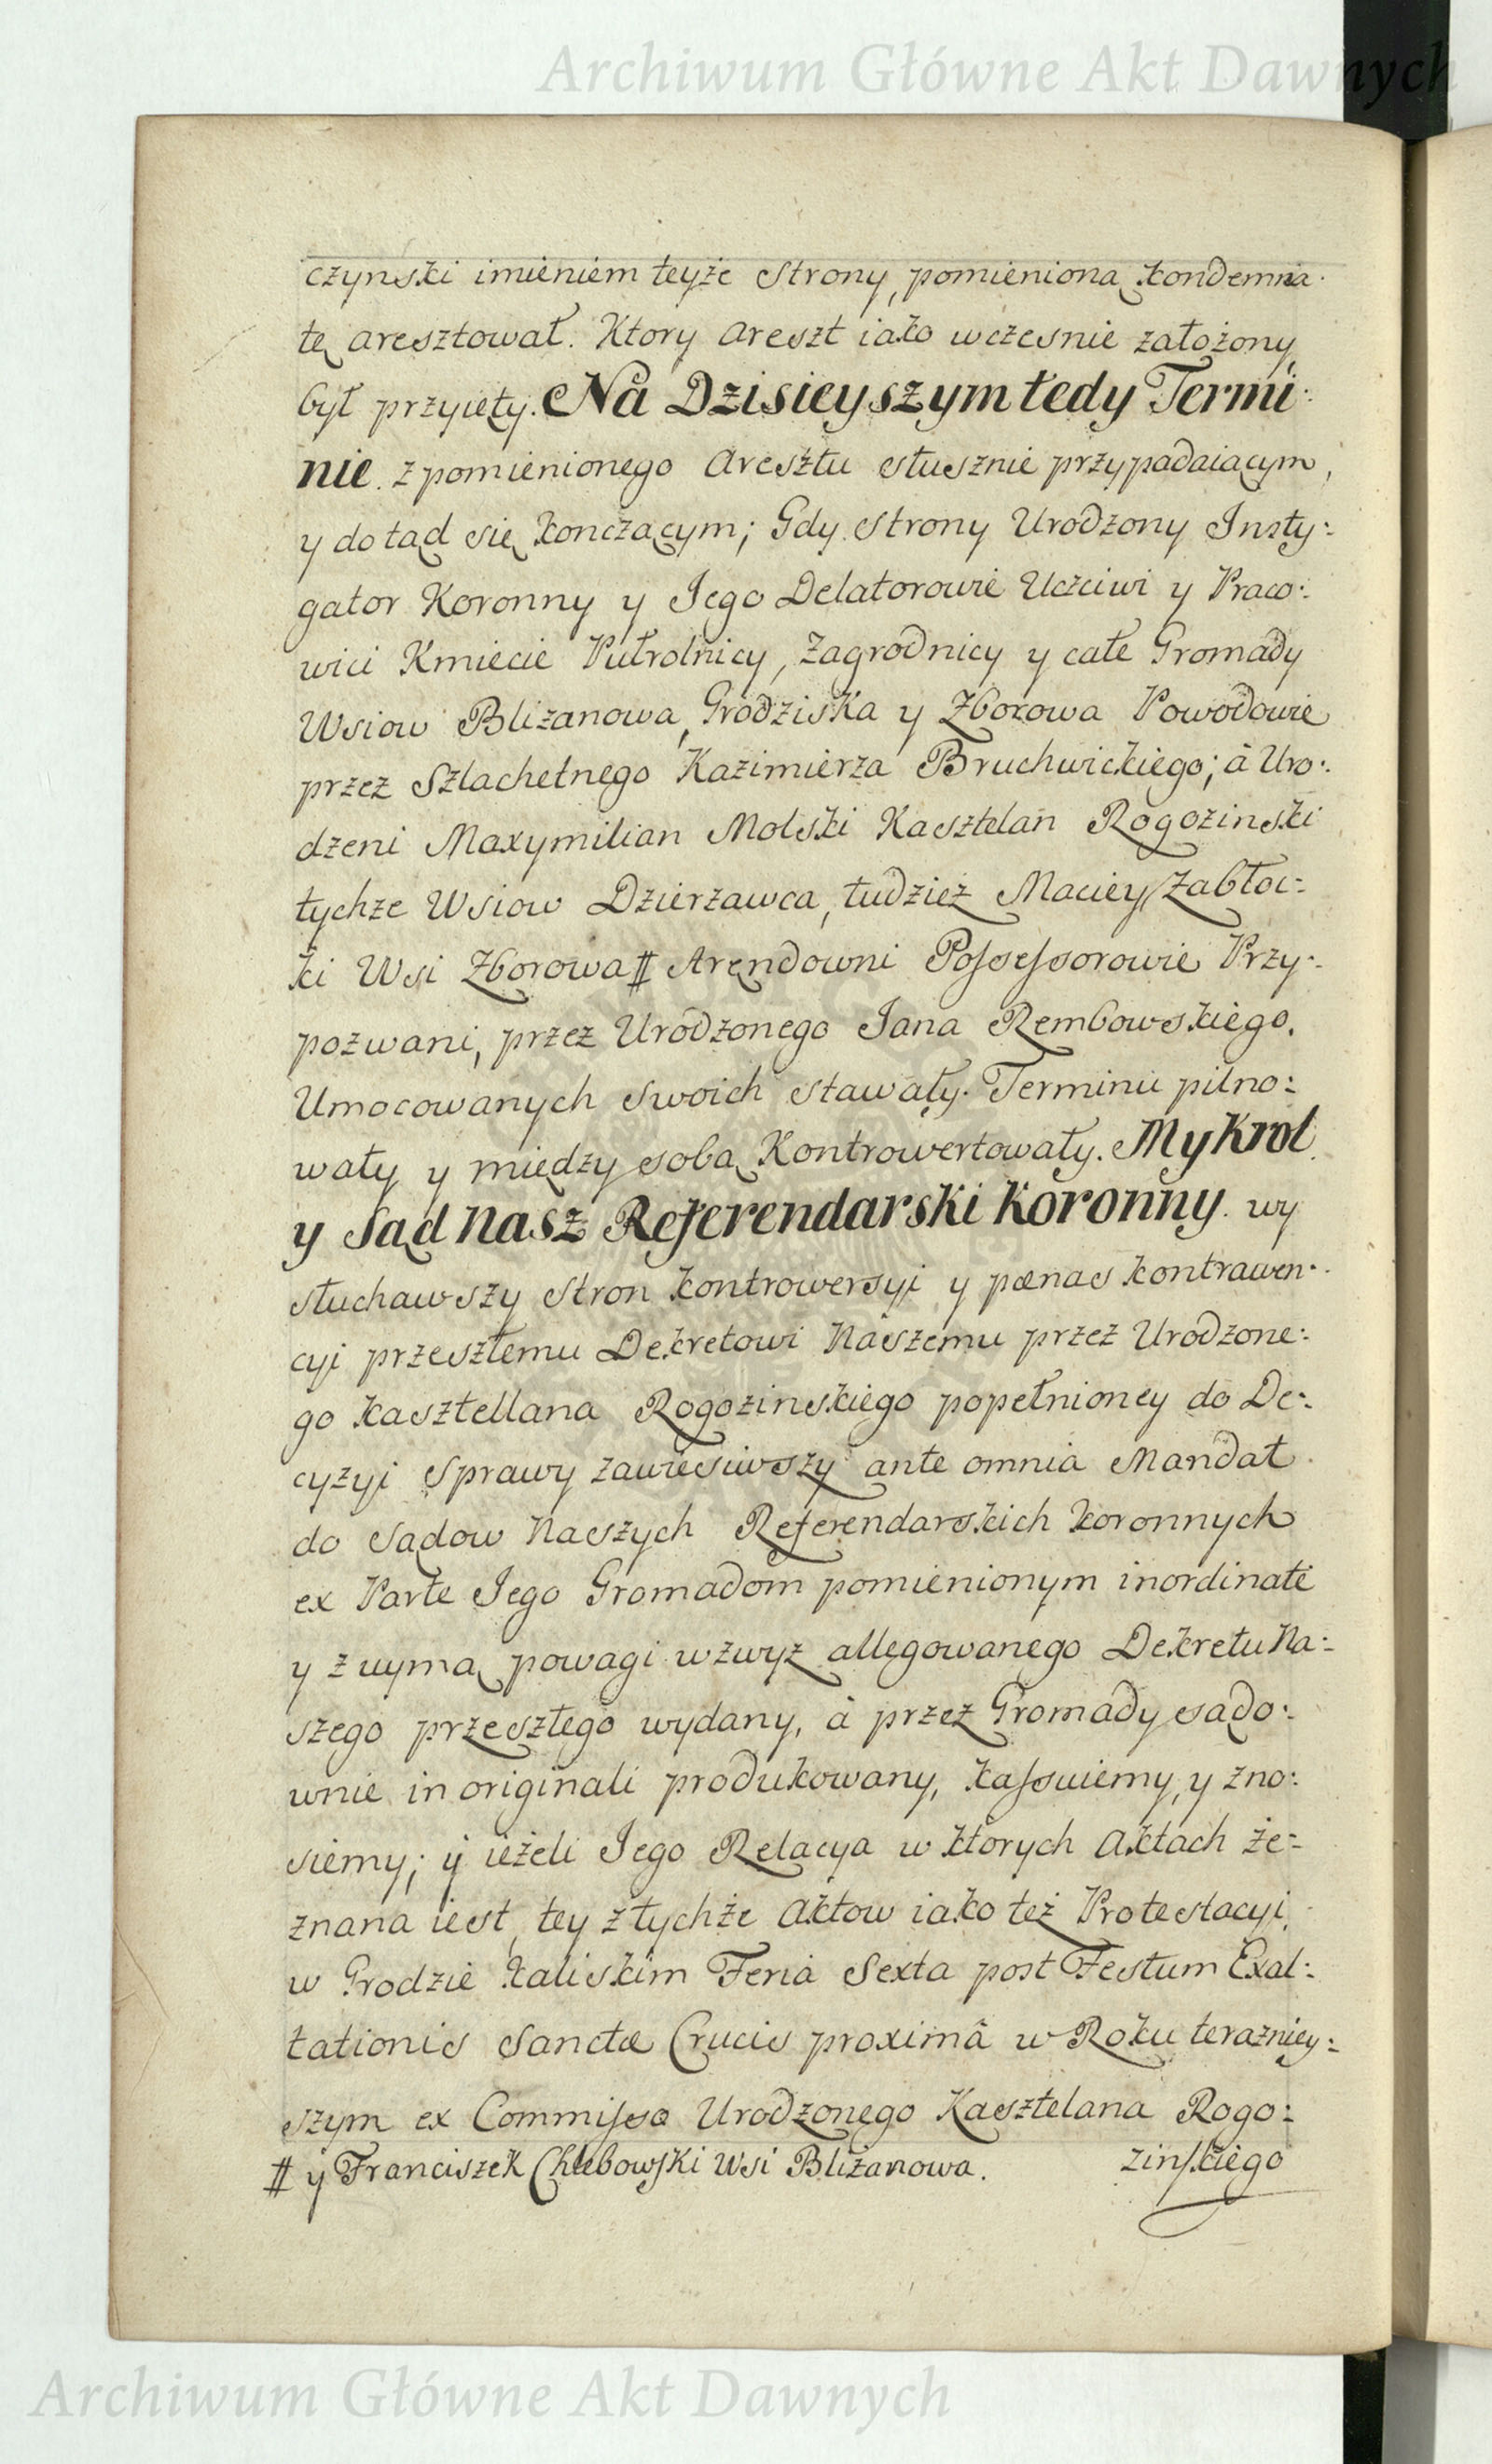 Archiwum Główne Akt Dawnych
czynski imieniem teyże Strony, pomienioną kondemna:
tę aresztował. Ktory Areszt iako wczesnie założony
był przyięty. Na Dzisieyszym tedy Termi:
nie z pomienionego Aresztu słusznie przypadaiącym,
y do tąd się konczącym; Gdy Strony Urodzony Insty:
gator Koronny y Jego Delatorowie Uczciwi y Praco:
wici Kmiecie Pułrolnicy, Zagrodnicy y całe Gromady
Wsiow Bliżanowa, Grodziska y Zborowa Powodowie
przez Szlachetnego Kazimierza Bruchwickiego; à Uro:
dzeni Maxymilian Molski Kasztelan Rogozinski
tychże Wsiow Dzierzawca, tudziez Maciey Zabłoc:
ki Wsi Zborowa # Arendowni Possessorowie Przy:
pozwani, przez Urodzonego Jana Rembowskiego.
Umocowanych swoich stawały. Terminu pilno:
wały y między sobą Kontrowertowały. My Krol
y Sąd Nasz Referendarski Koronny. wy
słuchawszy Stron kontrowersyi y pænas kontrawen:
cyi przeszłemu Dekretowi Naszemu przez Urodzone:
go Kasztellana Rogozinskiego popełnioney do De:
cyzyi Sprawy zawiesiwszy ante omnia Mandat
do Sądow Naszych Referendarskich koronnych
ex Parte Jego Gromadom pomienionym inordinate
y z uymą powagi wzwyz allegowanego Dekretu Na:
szego przeszłego wydany, à przez Gromady sądo:
wnie in originali produkowany, kassuiemy, y zno:
siemy; y ieżeli Jego Relacya w ktorych Aktach ze:
znana iest, tey z tychże Aktow iako też Protestacyi,
w Grodzie Kaliskim Feria Sexta post Festum Exal:
tationis Sanctæ Crucis proximâ w Roku terazniey:
szym ex Commisso Urodzonego Kasztelana Rogo:
# y Franciszek Chlebowski Wsi Bliżanowa. zinskiego
Archiwum Główne Akt Dawnych